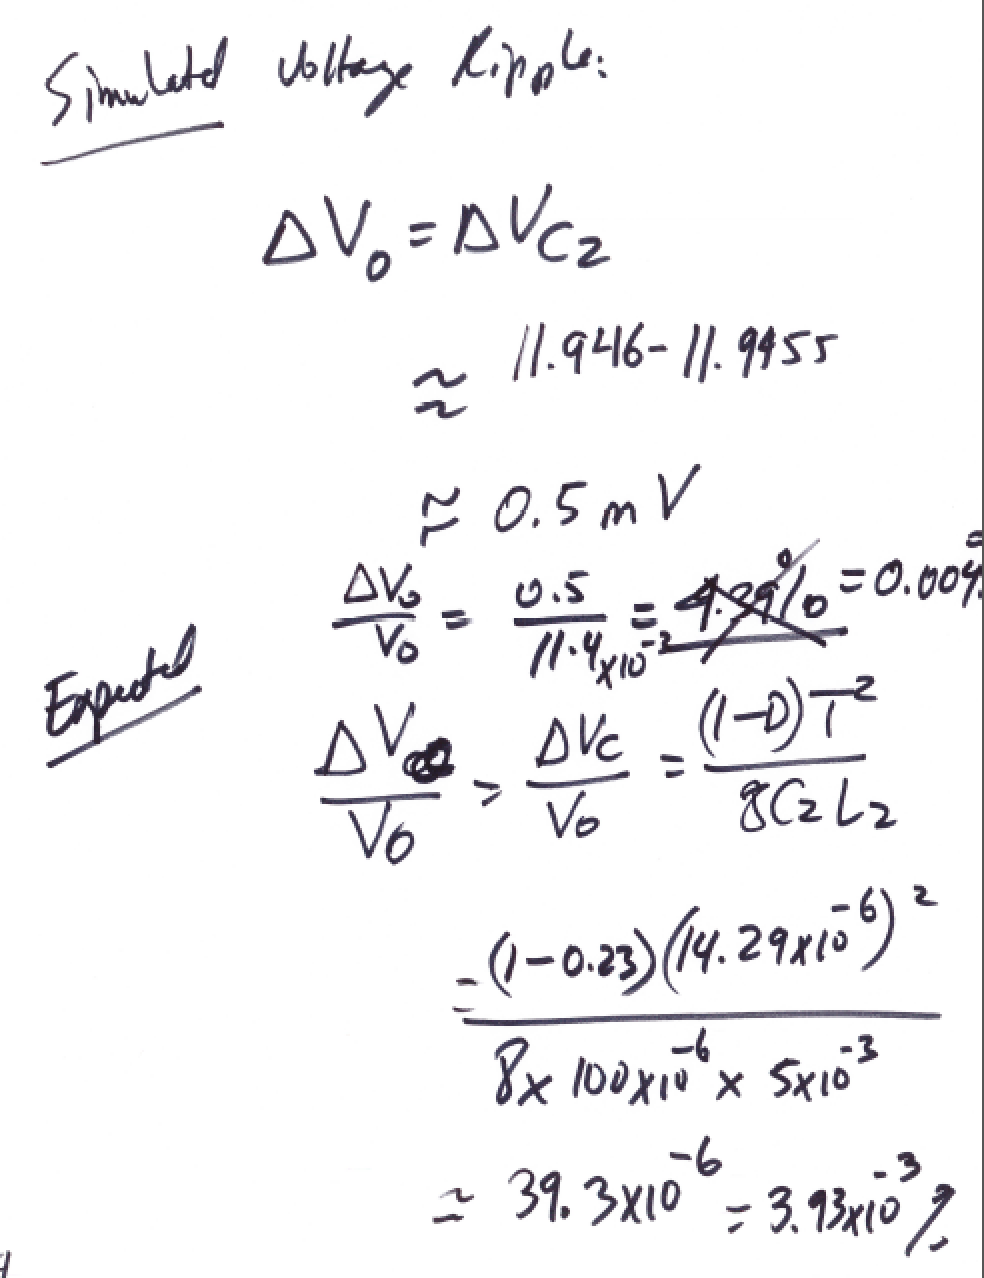 Simulated Voltage Ripple:
ΔV₀ = ΔV_C2
≈ 11.946 - 11.9455
≈ 0.5 mV
ΔV₀/V₀ = 0.5/11.4×10⁻² = = 0.004
Expected
ΔV/V₀ = ΔVc/V₀ = (1-D)T²/8C₂L₂
= (1-0.23)(14.29×10⁻⁶)²/8× 100×10⁻⁶ × 5×10⁻³
≈ 39.3×10⁻⁶ = 3.93×10⁻³ %